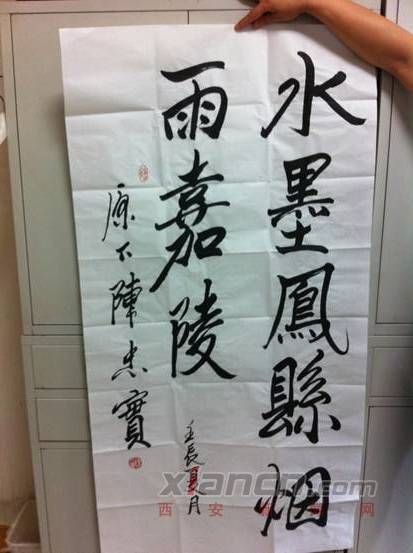 水墨鳳縣烟
雨嘉陵
壬辰夏月
原下陳忠實
xiancn.com
西安 網